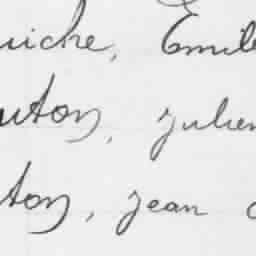 uiche, Emile
uton, julien
ton, jean